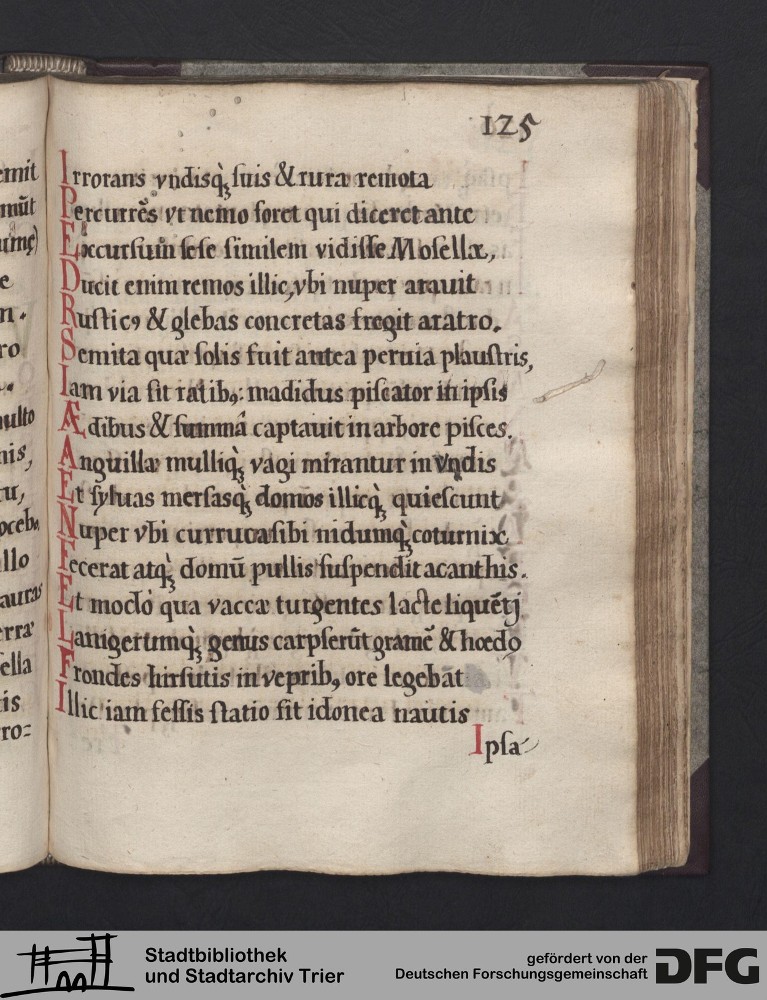 125
Irrorans vndisq; suis & rura remota
Percurrẽs vt nemo foret qui diceret ante
Excursum sese similem vidisse Mosellæ,
Ducit enim remos illic, vbi nuper arauit
Rusticꝯ & glebas concretas fregit aratro.
Semita quæ solis fuit antea peruia plaustris,
Iam via fit ratibꝯ: madidus piscator in ipsis
Ædibus & summâ captauit in arbore pisces.
Anguillæ mulliq; vagi mirantur in vndis
Et syluas mersasq; domos illicq; quiescunt
Nuper vbi curruca sibi nidumq; coturnix
Fecerat atq; domũ pullis suspendit acanthis.
Et modò qua vaccæ turgentes lacte liquẽti
Lanigerumq; genus carpserũt gramẽ & hœdo
Frondes hirsutis in vepribꝯ ore legebat
Illic iam fessis statio fit idonea nautis
Ipsa
emit
mũt
e
n.
ro
multo
nis,
tu,
llo
auras
erra
sella
tis
ro=
Stadtbibliothek
und Stadtarchiv Trier
gefördert von der
Deutschen Forschungsgemeinschaft
DFG